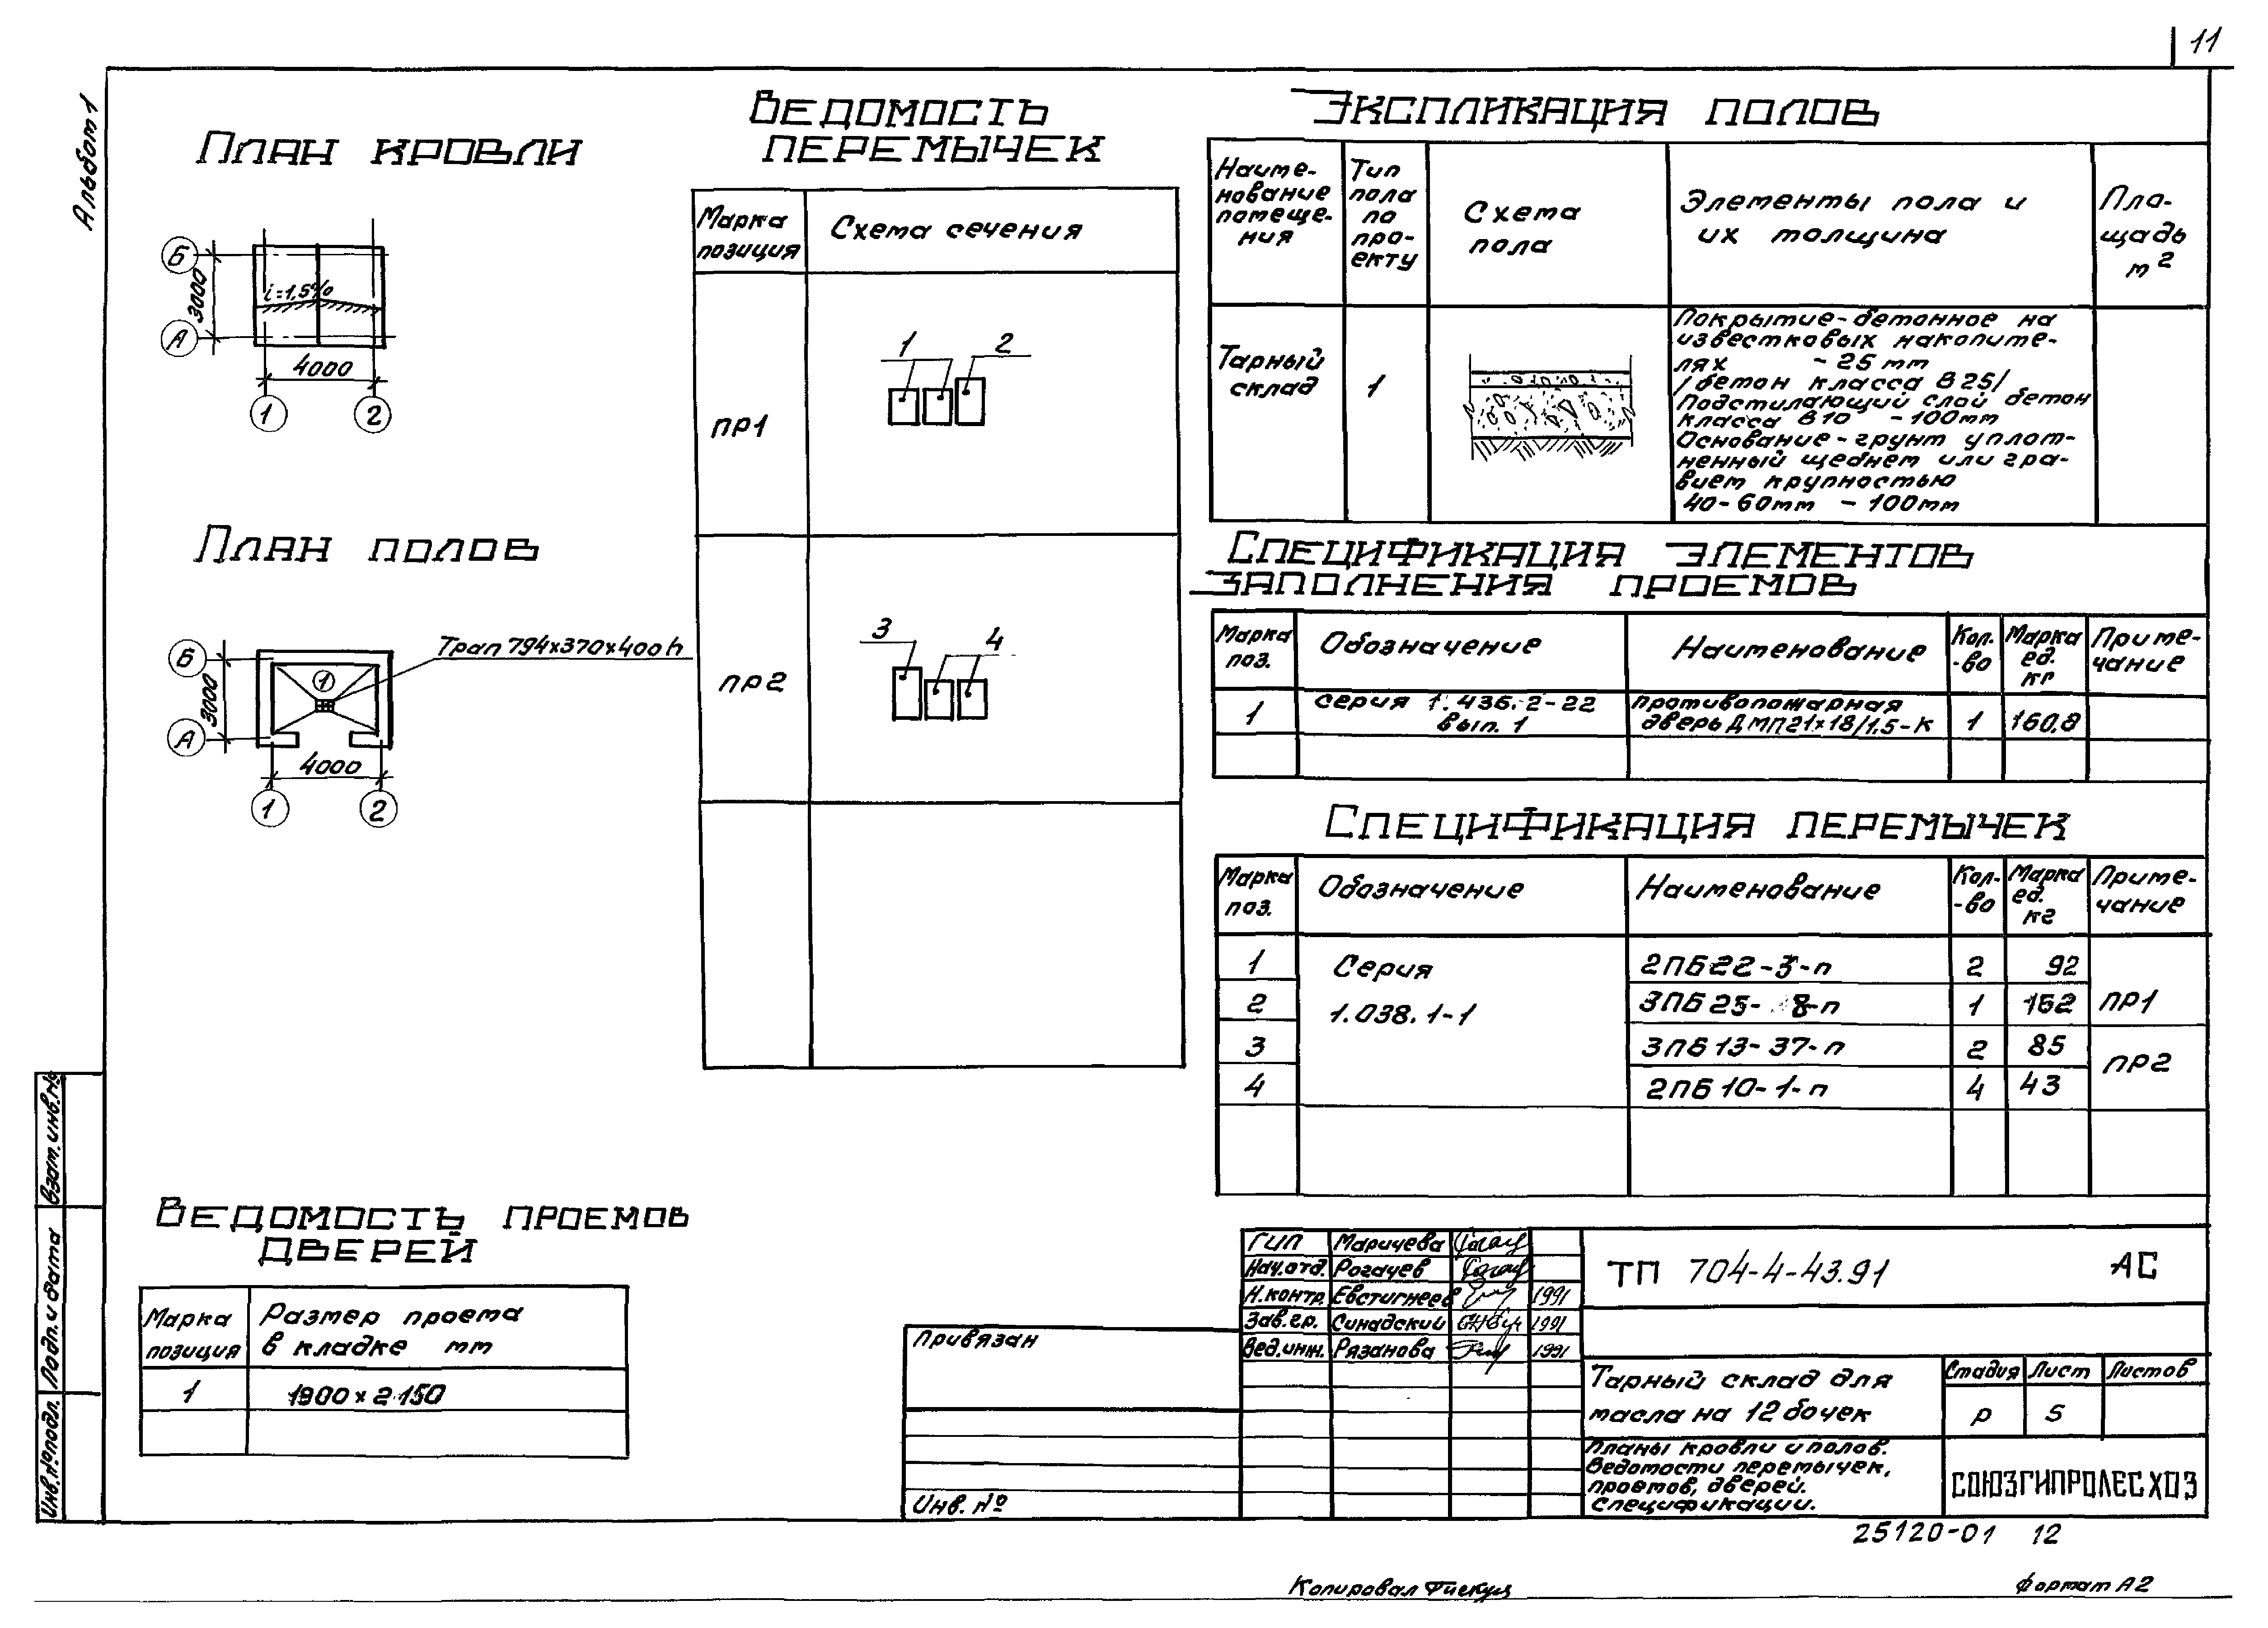 11
Альбом 1
План кровли
Б
3000
i=1,5%
А
4000
1
2
План полов
Трап 794х370х400h
Б
1
3000
А
4000
1
2
Ведомость
перемычек
Марка
позиция
Схема сечения
пр1
1
2
пр2
3
4
Экспликация полов
Наиме-
нование
помеще-
ния
Тип
пола
по
про-
екту
Схема
пола
Элементы пола и
их толщина
Пло-
щадь
м2
Тарный
склад
1
Покрытие-бетонное на
известковых наполните-
лях - 25 мм
/бетон класса В25/
Подстилающий слой бетон
класса В10 - 100мм
Основание-грунт уплот-
ненный щебнем или гра-
вием крупностью
40-60мм - 100мм
Спецификация элементов
заполнения проемов
Марка
поз.
Обозначение
Наименование
Кол.
-во
Марка
ед.
кг
Приме-
чание
1
серия 1.436.2-22
вып. 1
противопожарная
дверь ДМП21х18/1,5-К
1
160,8
Спецификация перемычек
Марка
поз.
Обозначение
Наименование
Кол-
-во
Марка
ед.
кг
Приме-
чание
Серия
1.038.1-1
1 2ПБ22-3-п 2 92
2 3ПБ25-8-п 1 162 пр1
3 3ПБ13-37-п 2 85
4 2ПБ10-1-п 4 43 пр2
Ведомость проемов
дверей
Марка
позиция
Размер проема
в кладке мм
1
1900х2150
Взам.инв.№
Подп. и дата
Инв.№подл.
Привязан
Инв. №
ГИП Маричева
Нач.отд. Рогачев
Н.контр. Евстигнеев 1991
Зав.гр. Синадский 1991
Вед.инж. Рязанова 1991
ТП 704-4-43.91 АС
Тарный склад для
масла на 12 бочек
Стадия Лист Листов
р 5
Планы кровли и полов.
Ведомости перемычек,
проемов, дверей.
Спецификации.
СОЮЗГИПРОЛЕСХОЗ
25120-01 12
Копировал
Формат А2